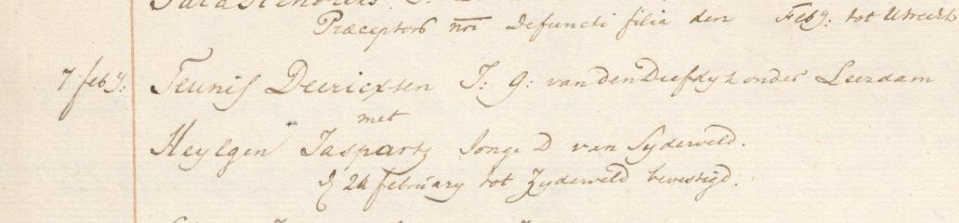 Præceptors nri defuncti filia den Feby: tot Utrecht
7 feby: Teunis Dericxsen J: G: van den Diefdyk onder Leerdam
met
Heylgen Jaspartz Jonge D van Syderveld.
24 february tot Zyderveld bevestigd.